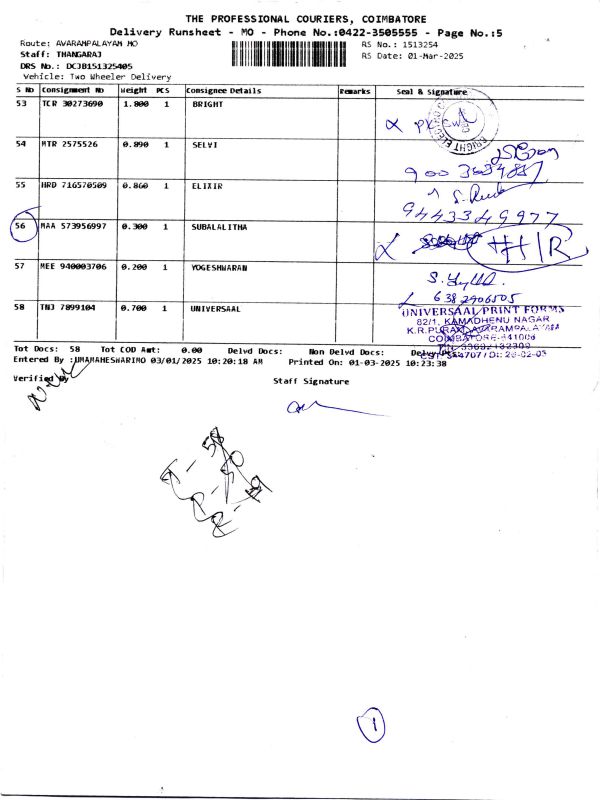 THE PROFESSIONAL COURIERS, COIMBATORE
Delivery Runsheet - MO - Phone No.:0422-3505555 - Page No.:5
Route: AVARAMPALAYAM MO
RS No.: 1513254
Staff: THANGARAJ
RS Date: 01-Mar-2025
DRS No.: DCJB151325405
Vehicle: Two Wheeler Delivery
S No Consignment No Weight PCS Consignee Details Remarks Seal & Signature
53 TCR 30273690 1.800 1 BRIGHT
54 MTR 2575526 0.890 1 SELVI
55 HRD 716570509 0.860 1 ELIXIR
9443349977
56 MAA 573956997 0.300 1 SUBALALITHA
57 MEE 940003706 0.200 1 YOGESHWARAN
6382906505
58 TNJ 7899104 0.700 1 UNIVERSAAL
UNIVERSAAL PRINT FORMS
82/1, KAMADHENU NAGAR
K.R.PURAM, AVARAMPALAYAM
COIMBATORE-641006
Tot Docs: 58 Tot COD Amt: 0.00 Delvd Docs: Non Delvd Docs:
Entered By :UMAMAHESWARIMO 03/01/2025 10:20:18 AM Printed On: 01-03-2025 10:23:38
Verified By
Staff Signature
1